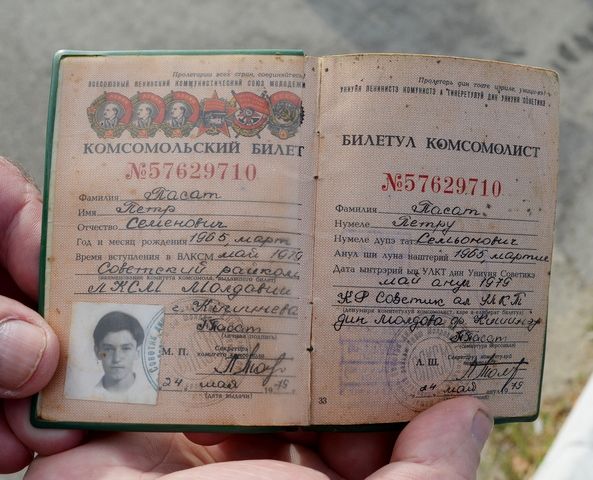 Пролетарии всех стран, соединяйтесь!
ВСЕСОЮЗНЫЙ ЛЕНИНСКИЙ КОММУНИСТИЧЕСКИЙ СОЮЗ МОЛОДЕЖИ
КОМСОМОЛЬСКИЙ БИЛЕТ
№57629710
Фамилия Пасат
Имя Петр
Отчество Семенович
Год и месяц рождения 1965, март
Время вступления в ВЛКСМ май 1979
Советский райком
(наименование комитета комсомола, выдавшего билет)
ЛКСМ Молдавии
г. Кишинева
Пасат
(личная подпись)
М. П. Секретарь
комитета комсомола
24 мая 1979
(дата выдачи)
Пролетарь дин тоате цэриле, уници-вэ!
УНИУНЯ ЛЕНИНИСТЭ КОМУНИСТЭ А ТИНЕРЕТУЛУЙ ДИН УНИУНЯ СОВЕТИКЭ
БИЛЕТУЛ КОМСОМОЛИСТ
№57629710
Фамилия Пасат
Нумеле Петру
Нумеле дупэ татэ Семьонович
Анул ши луна наштерий 1965, мартие
Дата ынтрэрий ын УЛКТ дин Униуня Советикэ
май анул 1979
КР Советик ал УЛКТ
дин Молдова др. Кишинэу
Пасат
А. Ш. Секретарул
24 май 1979
33